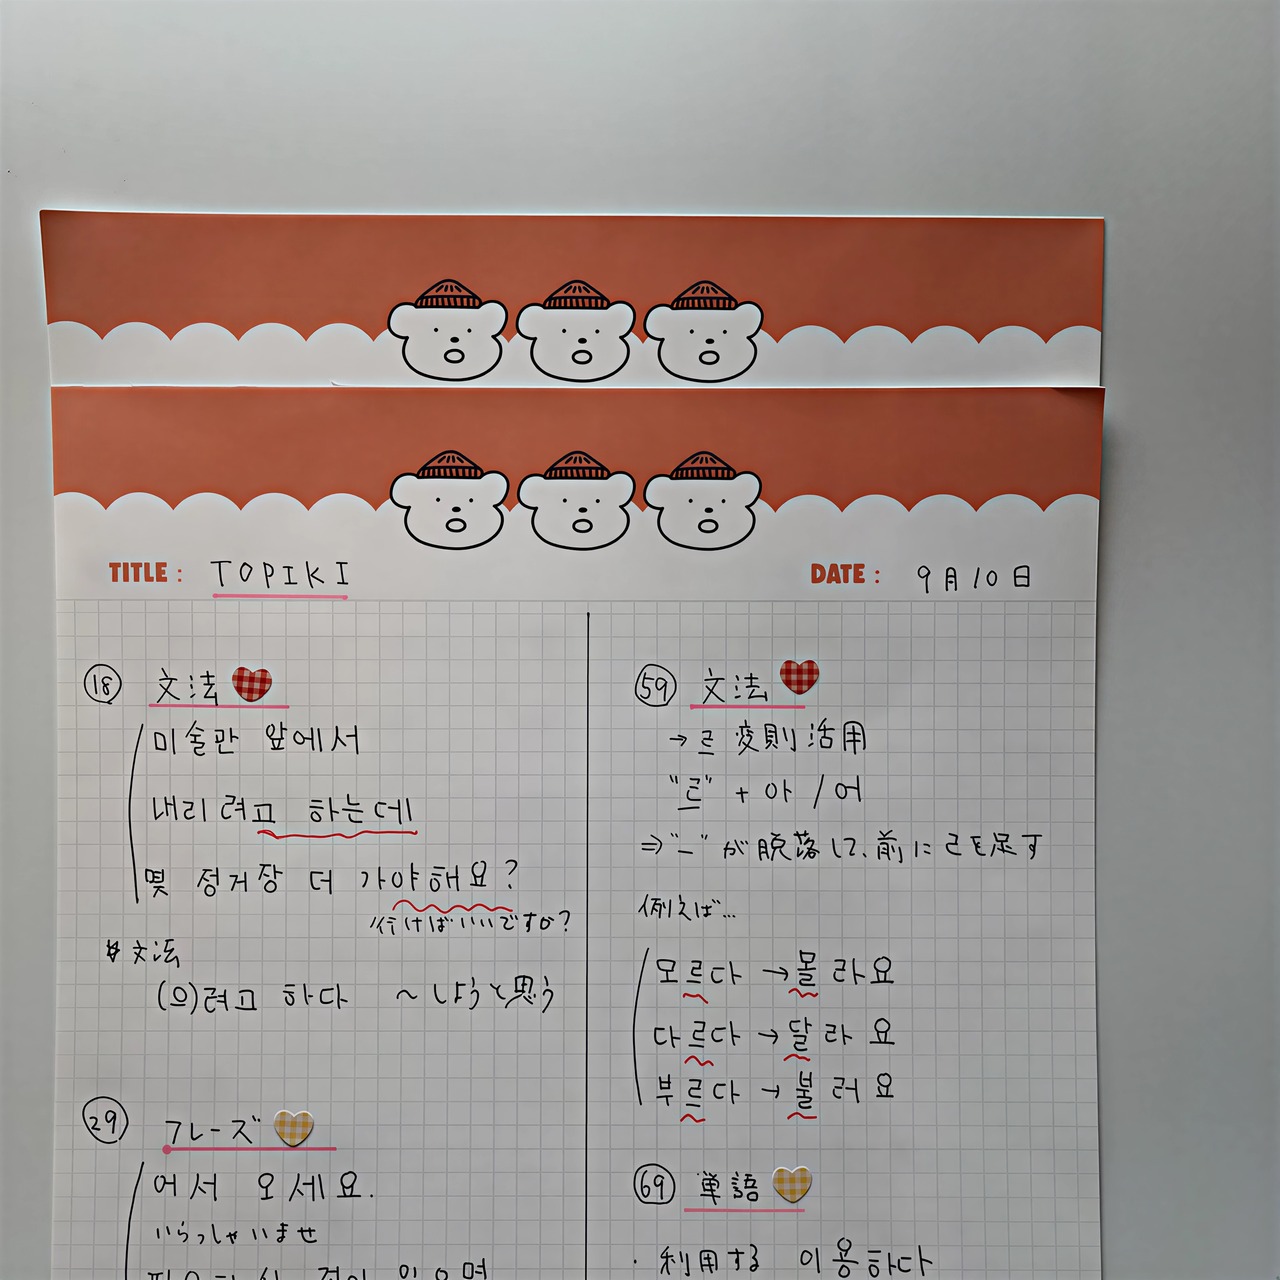 TITLE : TOPIKI
DATE : 9月10日
⑱ 文法
미술관 앞에서
내리려고 하는데
몇 정거장 더 가야해요?
行けばいいですか?
文法
(으)려고 하다 ~しようと思う
㉙ フレーズ
어서 오세요.
いらっしゃいませ
59 文法
→ 르 変則活用
"르" + 아 / 어
⇒ "ㅡ" が脱落して、前に ㄹを足す
例えば…
모르다 → 몰라요
다르다 → 달라요
부르다 → 불러요
69 単語
・利用する 이용하다